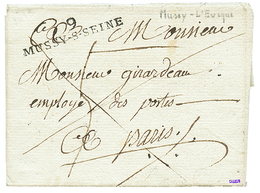 Mussy - L'Evêque
9
MUSSY-S-SEINE
A Monsieur
Monsieur girardeau
employé des postes
A paris